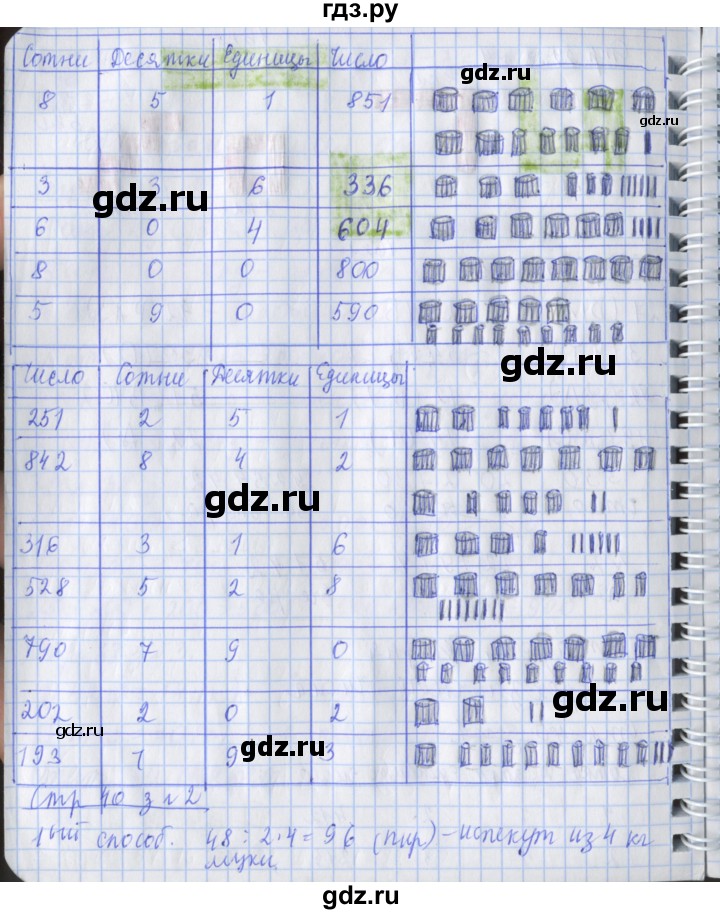 гдз.ру
Сотни Десятки Единицы Число
gdz.ru
8 5 1 851
gdz.ru
3 3 6 336
gdz.ru
6 0 4 604
8 0 0 800
5 9 0 590
gdz.ru
Число Сотни Десятки Единицы
251 2 5 1
842 8 4 2
gdz.ru
316 3 1 6
528 5 2 8
790 7 9 0
gdz.ru
202 2 0 2
gdz.ru
193 1 9 3
gdz.ru
Стр 40 з n 2
1ый способ. 48 : 2 · 4 = 96 (пир) – испекут из 4 кг
муки.
gdz.ru